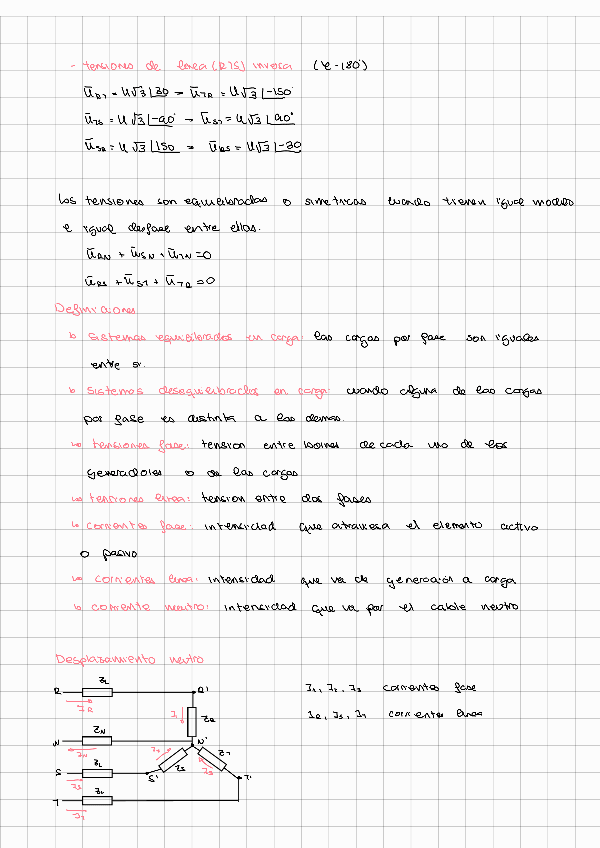 - tensiones de linea (RTS) inversa (γe-180°)
ūRT = U√3∠30 → ūTR = U√3∠-150°
ūTS = U√3∠-90° → ūST = U√3∠90°
ūSR = U√3∠150 → ūRS = U√3∠-30
Los tensiones son equilibradas o simetricas cuando tienen igual modulo
e igual desfase entre ellas.
ūRN + ūSN + ūTN = 0
ūRS + ūST + ūTR = 0
Definiciones
↳ Sistemas equilibrados en carga: las cargas por fase son iguales
entre si.
↳ Sistemas desequilibrados en carga: cuando alguna de las cargas
por fase es distinta a las demas.
↳ tensiones fase: tension entre bornes de cada uno de los
generadores o de las cargas
↳ tensiones linea: tension entre dos fases
↳ corrientes fase: intensidad que atraviesa el elemento activo
o pasivo
↳ corrientes linea: intensidad que va de generacion a carga
↳ corriente neutro: intensidad que va por el cable neutro
Desplazamiento neutro
R ZL R'
IR
I1 ZR
N ZN N'
IN
S ZL S' ZS ZT T'
IS
T ZL
IT
I1, I2, I3 corrientes fase
IR, IS, IT corrientes linea